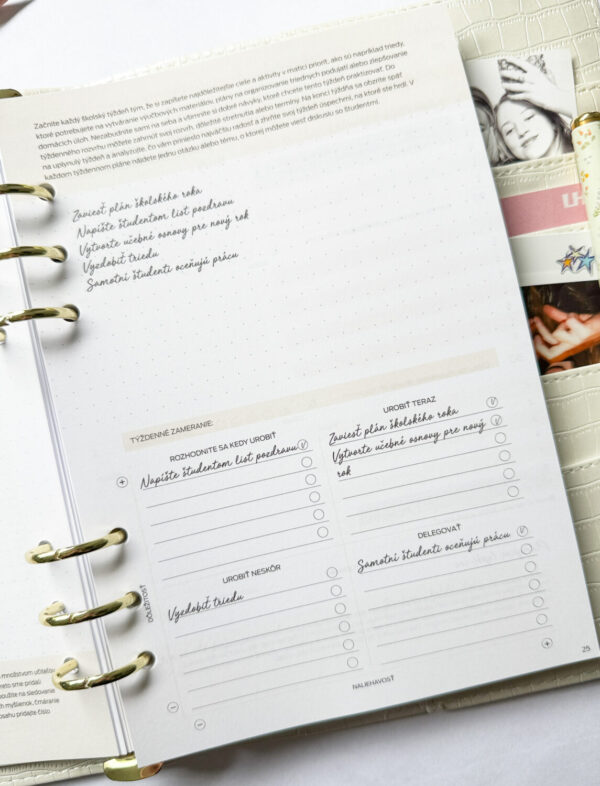 Začnite každý školský týždeň tým, že si zapíšete najdôležitejšie ciele a aktivity v matici priorít, ako sú napríklad triedy,
ktoré potrebujete na vytváranie vyučbových materiálov, plány na organizovanie triednych podujatí alebo zlepšovanie
domácich úloh. Nezabudnite sami na seba a všimnite si dobré návyky, ktoré chcete tento týždeň praktizovať. Do
týždenného rozvrhu môžete zahrnúť svoj rozvrh, dôležité stretnutia alebo termíny. Na konci týždňa sa obzrite späť
na uplynulý týždeň a analyzujte, čo vám prinieslo najväčšiu radosť a zhrňte svoj týždeň úspechmi, na ktoré ste hrdí. V
každom týždennom pláne nájdete jednu otázku alebo tému, o ktorej môžete viesť diskusiu so študentmi.
Zaviesť plán školského roka
Napíšte študentom list pozdravu
Vytvorte učebné osnovy pre nový rok
Vyzdobiť triedu
Samotní študenti oceňujú prácu
TÝŽDENNÉ ZAMERANIE:
ROZHODNITE SA KEDY UROBIŤ
Napíšte študentom list pozdravu
UROBIŤ TERAZ
Zaviesť plán školského roka
Vytvorte učebné osnovy pre nový
rok
UROBIŤ NESKÔR
Vyzdobiť triedu
DELEGOVAŤ
Samotní študenti oceňujú prácu
DÔLEŽITOSŤ
NALIEHAVOSŤ
25
množstvom učiteľov
reto sme pridali
použite na sledovanie
h myšlienok, čmáranie
obsahu pridajte číslo